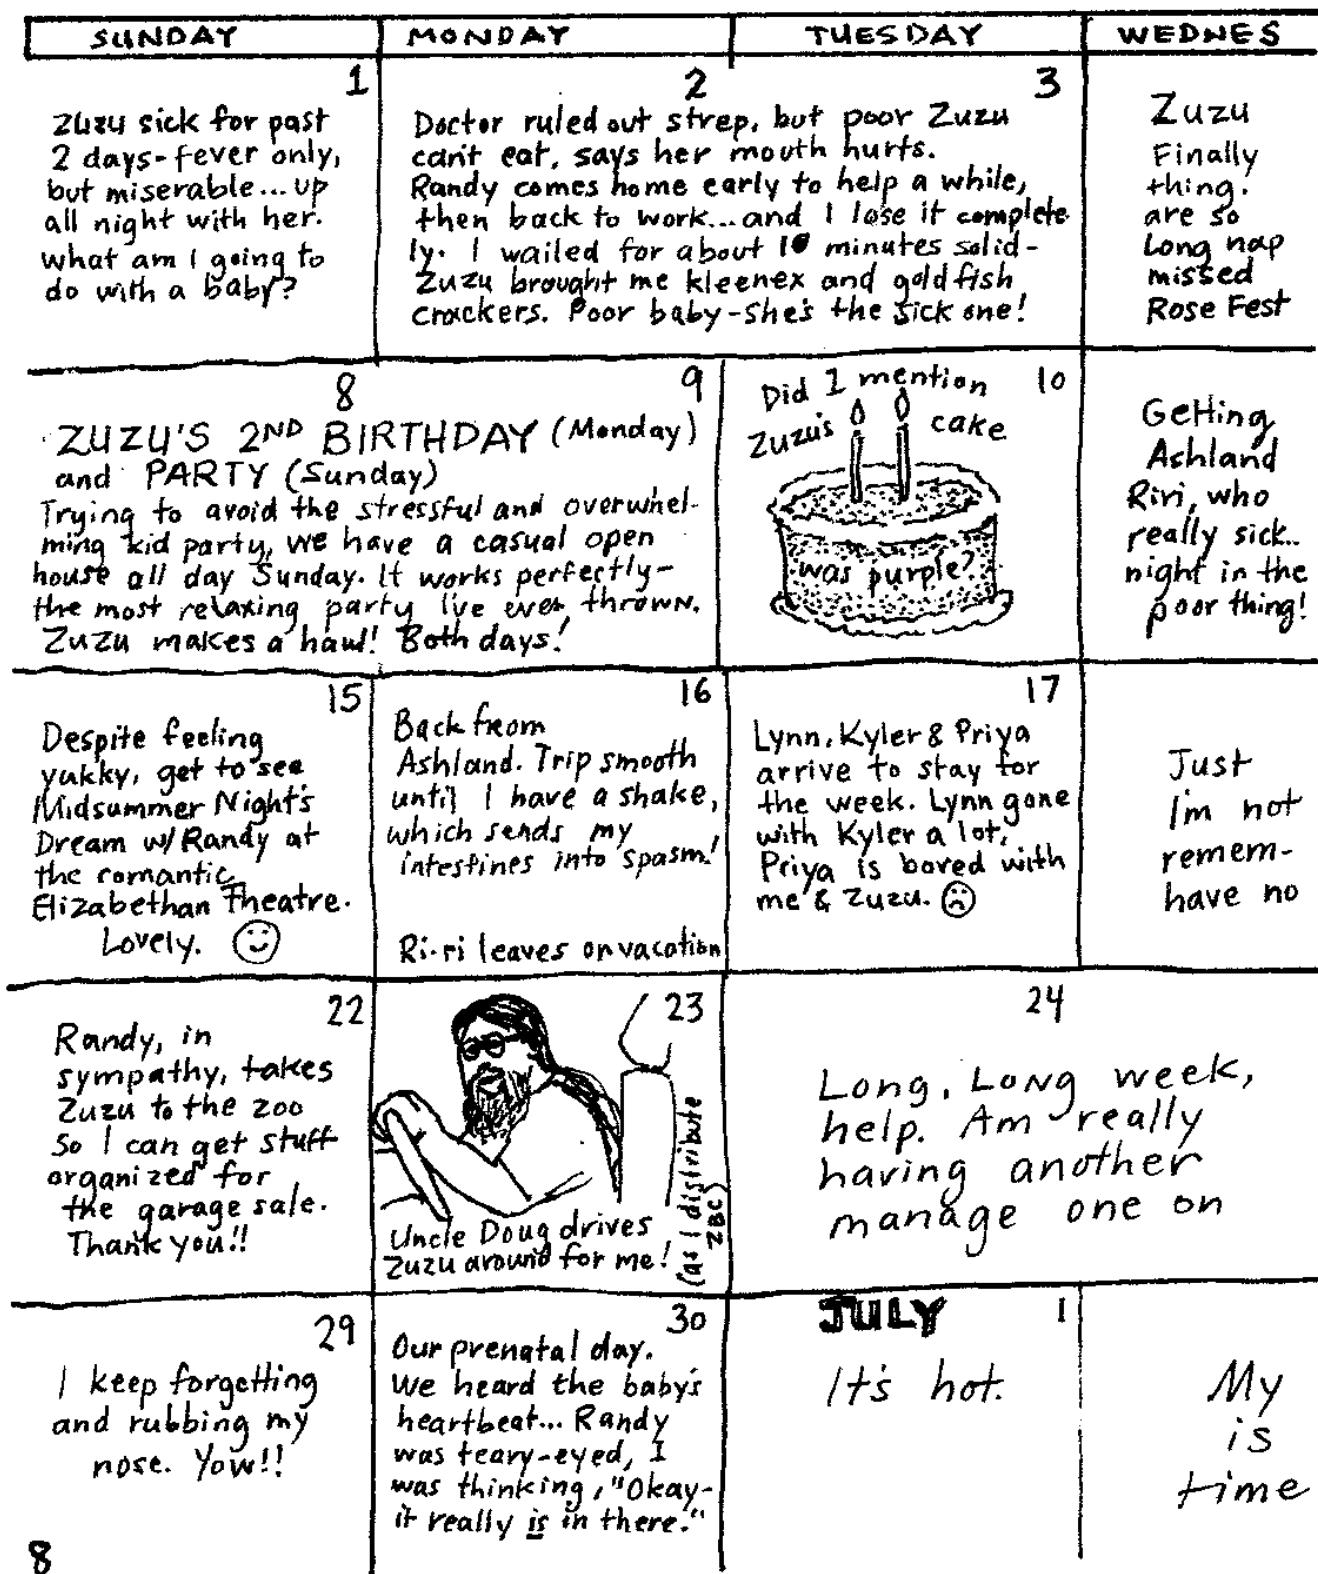 SUNDAY
MONDAY
TUESDAY
WEDNES
1
Zuzu sick for past
2 days-fever only,
but miserable... up
all night with her.
what am I going to
do with a baby?
2
3
Doctor ruled out strep, but poor Zuzu
can't eat, says her mouth hurts.
Randy comes home early to help a while,
then back to work... and I lose it complete
ly. I wailed for about 10 minutes solid-
Zuzu brought me kleenex and goldfish
crackers. Poor baby-she's the sick one!
Zuzu
Finally
thing.
are so
Long nap
missed
Rose Fest
8
9
ZUZU'S 2ND BIRTHDAY (Monday)
and PARTY (Sunday)
Trying to avoid the stressful and overwhel-
ming kid party, we have a casual open
house all day Sunday. It works perfectly-
the most relaxing party I've ever thrown.
Zuzu makes a haul! Both days!
10
Did I mention
Zuzu's cake
was purple?
Getting
Ashland
Riri, who
really sick..
night in the
poor thing!
15
Despite feeling
yukky, get to see
Midsummer Night's
Dream w/ Randy at
the romantic
Elizabethan Theatre.
Lovely.
16
Back from
Ashland. Trip smooth
until I have a shake,
which sends my
intestines into spasm!
Ri-ri leaves on vacation
17
Lynn, Kyler & Priya
arrive to stay for
the week. Lynn gone
with Kyler a lot,
Priya is bored with
me & Zuzu.
Just
I'm not
remem-
have no
22
Randy, in
sympathy, takes
Zuzu to the zoo
So I can get stuff
organized for
the garage sale.
Thank you!!
23
Uncle Doug drives
Zuzu around for me!
(as I distribute
ZBC)
24
Long, Long week,
help. Am really
having another
manage one on
29
I keep forgetting
and rubbing my
nose. Yow!!
30
Our prenatal day.
We heard the baby's
heartbeat... Randy
was teary-eyed, I
was thinking, "Okay-
it really is in there."
JULY 1
It's hot.
My
is
time
8